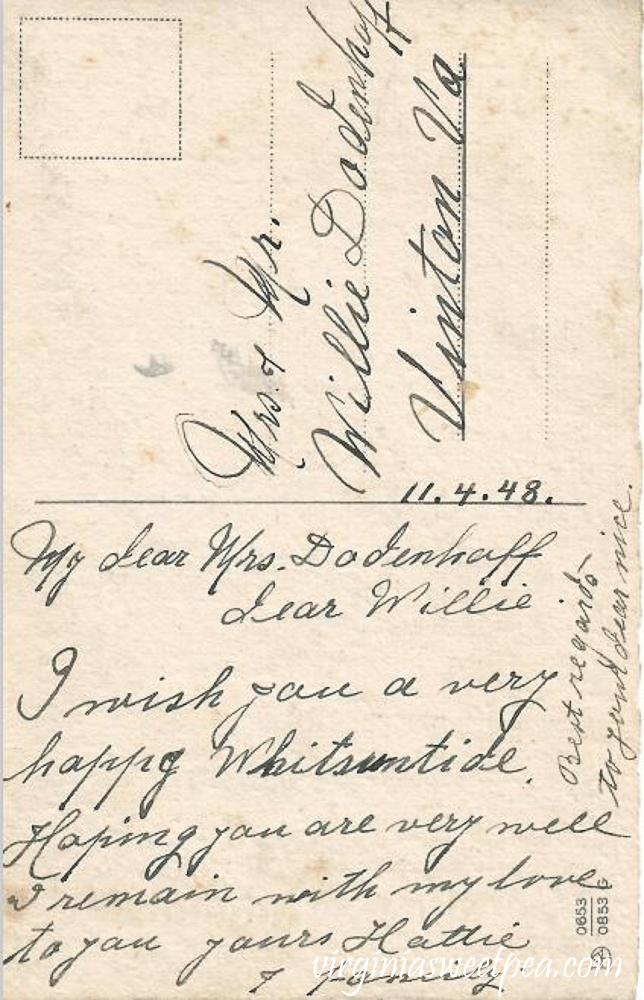 Mrs. & Mr.
Willie Dodenhoff
Vinton Va
11.4.48.
My dear Mrs. Dodenhaff
dear Willie
I wish you a very
happy Whitsuntide.
Hoping you are very well
I remain with my love
to you yours Hattie
& family
Best regards
to your dear nice.
0653
0853 G
virginiasweetpea.com